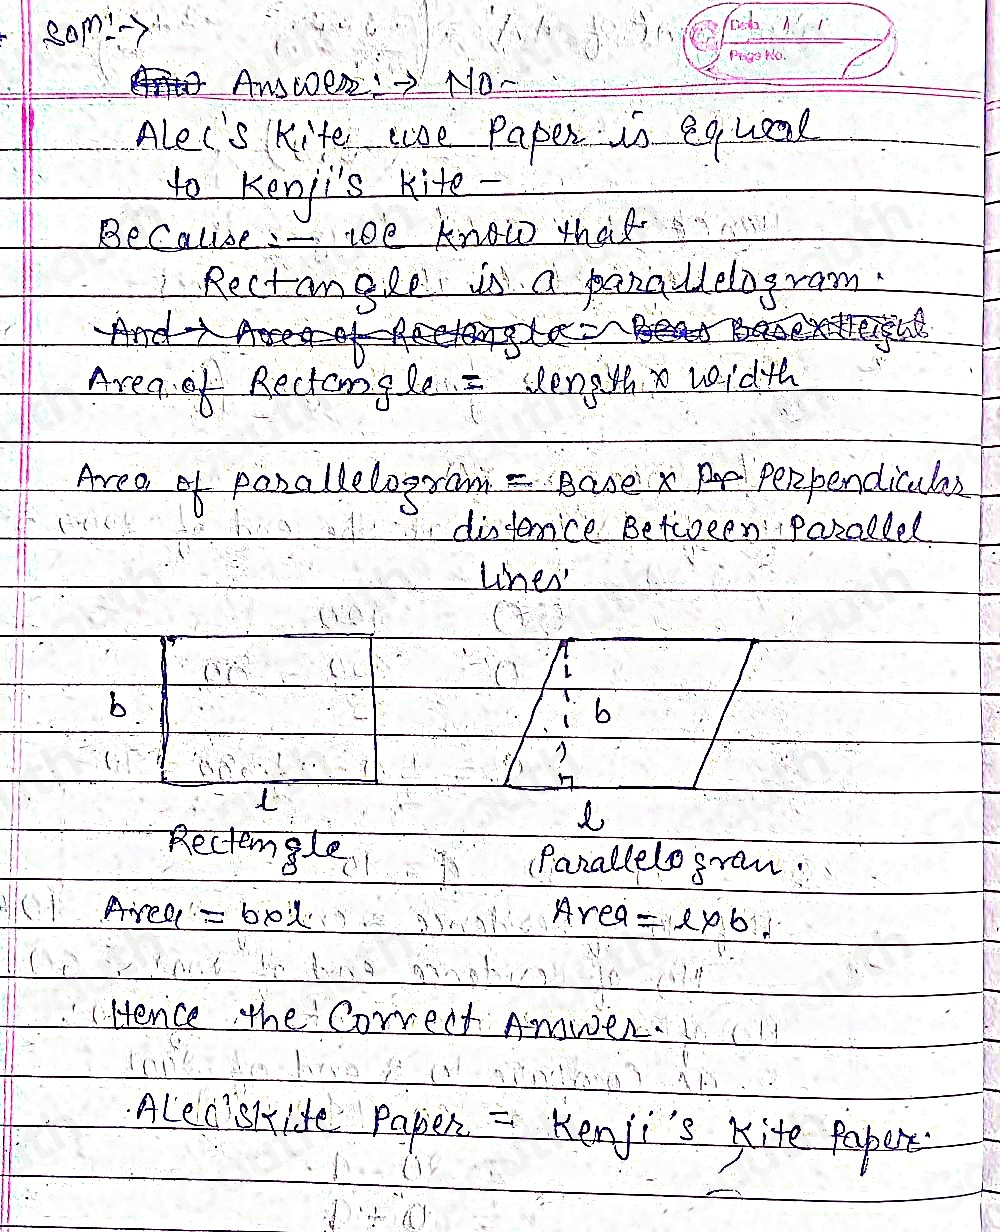 Som:→
Date / /
Page No.
Answer:→ No-
Alec's Kite use Paper is Equal
to Kenji's Kite -
Because:- we know that
Rectangle is a parallelogram.
And → Area of Rectangle = Beas Base x Height
Area of Rectangle = length x width
Area of parallelogram = Base x Pe Perpendicular
distance Between Parallel
Lines'
b
b
l
l
Rectangle
Parallelogram.
Area = b x l
Area = l x b.
Hence the Correct Answer.
Alec's Kite Paper = Kenji's Kite Paper.